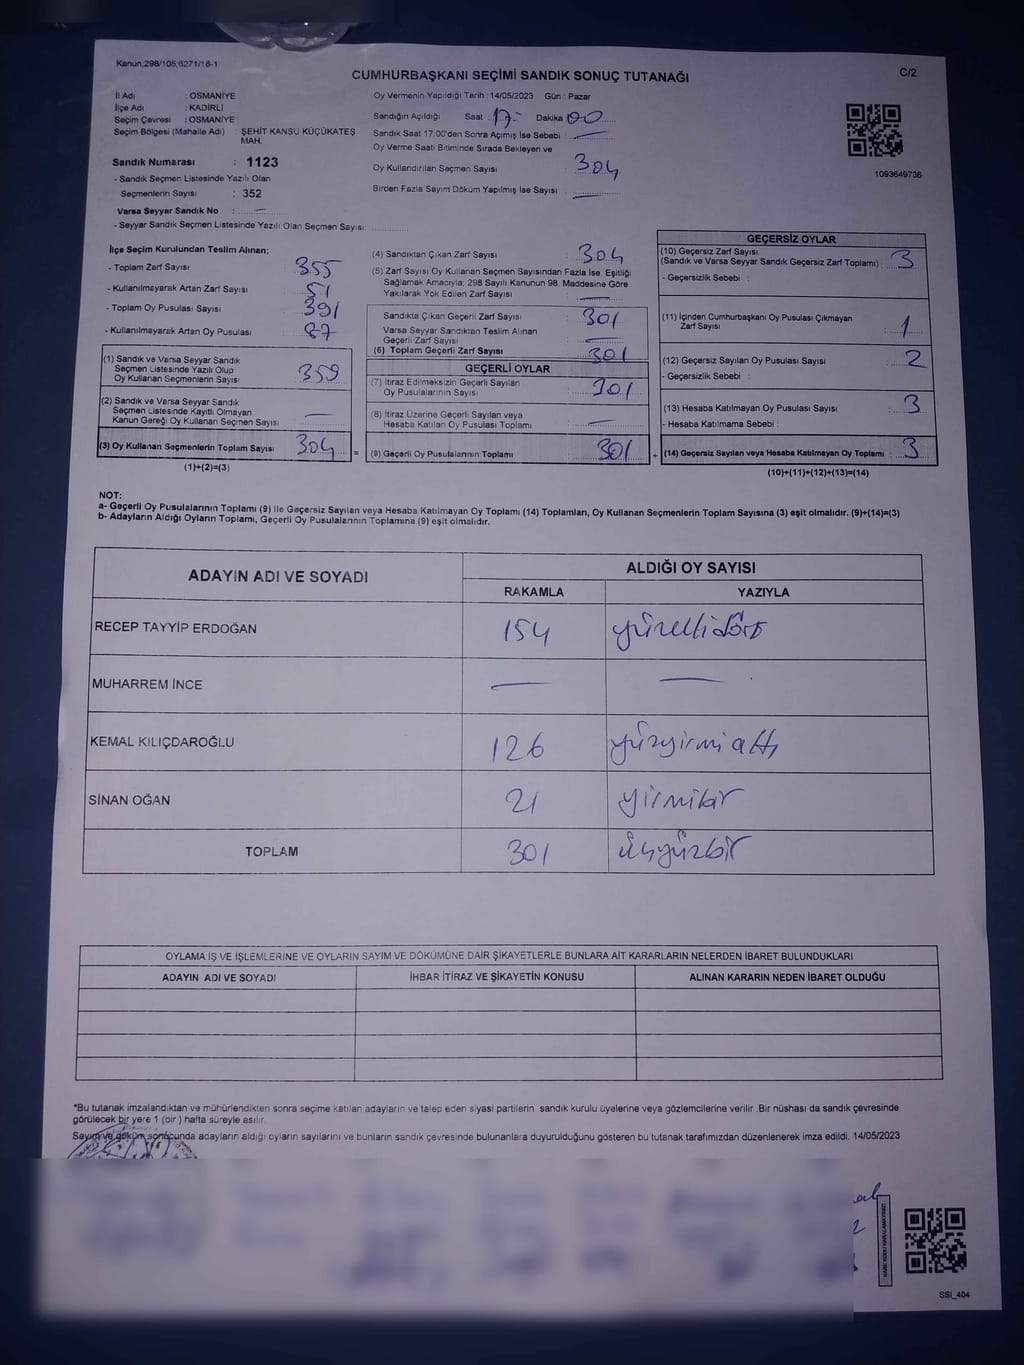 Kanun;298/105;6271/18-1
CUMHURBAŞKANI SEÇİMİ SANDIK SONUÇ TUTANAĞI
C/2
İl Adı : OSMANİYE
İlçe Adı : KADİRLİ
Seçim Çevresi : OSMANİYE
Seçim Bölgesi (Mahalle Adı) : ŞEHİT KANSU KÜÇÜKATEŞ
MAH.
Sandık Numarası : 1123
- Sandık Seçmen Listesinde Yazılı Olan
Seçmenlerin Sayısı : 352
Varsa Seyyar Sandık No : —
- Seyyar Sandık Seçmen Listesinde Yazılı Olan Seçmen Sayısı:
Oy Vermenin Yapıldığı Tarih : 14/05/2023 Gün : Pazar
Sandığın Açıldığı Saat : 17: Dakika : 00
Sandık Saat 17:00'den Sonra Açımış İse Sebebi : —
Oy Verme Saati Bitiminde Sırada Bekleyen ve
Oy Kullandırılan Seçmen Sayısı : 304
Birden Fazla Sayım Döküm Yapılmış İse Sayısı : —
1093649736
İlçe Seçim Kurulundan Teslim Alınan;
- Toplam Zarf Sayısı : 355
- Kullanılmayarak Artan Zarf Sayısı : 51
- Toplam Oy Pusulası Sayısı : 391
- Kullanılmayarak Artan Oy Pusulası : 87
(1) Sandık ve Varsa Seyyar Sandık
Seçmen Listesinde Yazılı Olup
Oy Kullanan Seçmenlerin Sayısı : 359
(2) Sandık ve Varsa Seyyar Sandık
Seçmen Listesinde Kayıtlı Olmayan
Kanun Gereği Oy Kullanan Seçmen Sayısı : —
(3) Oy Kullanan Seçmenlerin Toplam Sayısı : 304
(1)+(2)=(3)
(4) Sandıktan Çıkan Zarf Sayısı : 304
(5) Zarf Sayısı Oy Kullanan Seçmen Sayısından Fazla İse, Eşitliği
Sağlamak Amacıyla; 298 Sayılı Kanunun 98. Maddesine Göre
Yakılarak Yok Edilen Zarf Sayısı : —
Sandıkta Çıkan Geçerli Zarf Sayısı : 301
Varsa Seyyar Sandıktan Teslim Alınan
Geçerli Zarf Sayısı : —
(6) Toplam Geçerli Zarf Sayısı : 301
GEÇERLİ OYLAR
(7) İtiraz Edilmeksizin Geçerli Sayılan
Oy Pusulalarının Sayısı : 301
(8) İtiraz Üzerine Geçerli Sayılan veya
Hesaba Katılan Oy Pusulası Toplamı : —
= (9) Geçerli Oy Pusulalarının Toplamı : 301
GEÇERSİZ OYLAR
(10) Geçersiz Zarf Sayısı
(Sandık ve Varsa Seyyar Sandık Geçersiz Zarf Toplamı) : 3
- Geçersizlik Sebebi :
(11) İçinden Cumhurbaşkanı Oy Pusulası Çıkmayan
Zarf Sayısı : 1
(12) Geçersiz Sayılan Oy Pusulası Sayısı : 2
- Geçersizlik Sebebi :
(13) Hesaba Katılmayan Oy Pusulası Sayısı : 3
- Hesaba Katılmama Sebebi :
+ (14) Geçersiz Sayılan veya Hesaba Katılmayan Oy Toplamı : 3
(10)+(11)+(12)+(13)=(14)
NOT:
a- Geçerli Oy Pusulalarının Toplamı (9) ile Geçersiz Sayılan veya Hesaba Katılmayan Oy Toplamı (14) Toplamları, Oy Kullanan Seçmenlerin Toplam Sayısına (3) eşit olmalıdır. (9)+(14)=(3)
b- Adayların Aldığı Oyların Toplamı, Geçerli Oy Pusulalarının Toplamına (9) eşit olmalıdır.
ADAYIN ADI VE SOYADI
ALDIĞI OY SAYISI
RAKAMLA YAZIYLA
RECEP TAYYİP ERDOĞAN 154 yüzellidört
MUHARREM İNCE — —
KEMAL KILIÇDAROĞLU 126 yüzyirmialtı
SİNAN OĞAN 21 yirmibir
TOPLAM 301 üçyüzbir
OYLAMA İŞ VE İŞLEMLERINE VE OYLARIN SAYIM VE DÖKÜMÜNE DAİR ŞİKAYETLERLE BUNLARA AİT KARARLARIN NELERDEN İBARET BULUNDUKLARI
ADAYIN ADI VE SOYADI İHBAR İTİRAZ VE ŞİKAYETİN KONUSU ALINAN KARARIN NEDEN İBARET OLDUĞU
*Bu tutanak imzalandıktan ve mühürlendikten sonra seçime katılan adayların ve talep eden siyasi partilerin sandık kurulu üyelerine veya gözlemcilerine verilir. Bir nüshası da sandık çevresinde
görülecek bir yere 1 (bir ) hafta süreyle asılır.
Sayım ve döküm sonucunda adayların aldığı oyların sayılarını ve bunların sandık çevresinde bulunanlara duyurulduğunu gösteren bu tutanak tarafımızdan düzenlenerek imza edildi. 14/05/2023
SSI_404